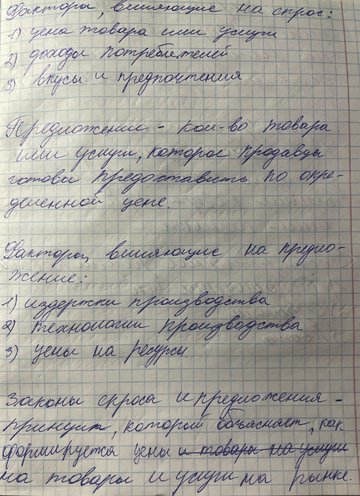 Факторы, влияющие на спрос:
1) цена товара или услуги
2) доходы потребителей
3) вкусы и предпочтения
Предложение - кол-во товара
или услуги, которое продавцы
готовы предоставить по опре-
деленной цене.
Факторы, влияющие на предло-
жение:
1) издержки производства
2) технологии производства
3) цены на ресурсы
Законы спроса и предложения -
принцип, который объясняет, как
формируется цены и товары на услуги
на товары и услуги на рынке.